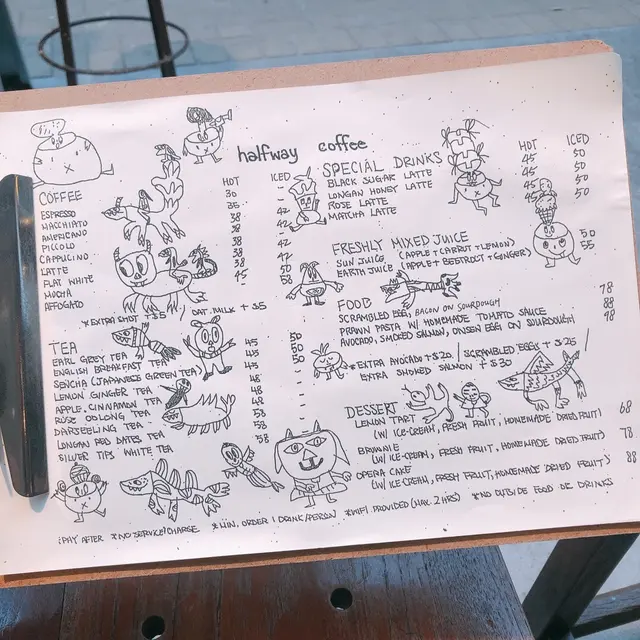 halfway coffee
COFFEE HOT ICED
ESPRESSO 30 -
MACCHIATO 36 -
AMERICANO 38 42
PICCOLO 38 -
CAPPUCINO 38 42
LATTE 38 42
FLAT WHITE 38 42
MOCHA 45 50
AFFOGATO - 58
*EXTRA SHOT +$5 / OAT MILK +$5
TEA
EARL GREY TEA 45 50
ENGLISH BREAKFAST TEA 45 50
SENCHA (JAPANESE GREEN TEA) 45 50
LEMON GINGER TEA 48 -
APPLE CINNAMON TEA 48 -
ROSE OOLONG TEA 48 -
DARJEELING TEA 58 -
LONGAN RED DATES TEA 58 -
SILVER TIPS WHITE TEA 58 -
SPECIAL DRINKS HOT ICED
BLACK SUGAR LATTE 45 50
LONGAN HONEY LATTE 45 50
ROSE LATTE 45 50
MATCHA LATTE 45 50
FRESHLY MIXED JUICE
SUN JUICE (APPLE + CARROT + LEMON) 50
EARTH JUICE (APPLE + BEETROOT + GINGER) 55
FOOD
SCRAMBLED EGG, BACON ON SOURDOUGH 78
PRAWN PASTA W/ HOMEMADE TOMATO SAUCE 88
AVOCADO, SMOKED SALMON, ONSEN EGG ON SOURDOUGH 98
*EXTRA AVOCADO +$20 / SCRAMBLED EGGS +$25 /
EXTRA SMOKED SALMON +$30
DESSERT
LEMON TART 68
(W/ ICE-CREAM, FRESH FRUIT, HOMEMADE DRIED FRUIT)
BROWNIE 78
(W/ ICE-CREAM, FRESH FRUIT, HOMEMADE DRIED FRUIT)
OPERA CAKE 88
(W/ ICE-CREAM, FRESH FRUIT, HOMEMADE DRIED FRUIT)
PAY AFTER *NO SERVICE CHARGE *MIN. ORDER 1 DRINK/PERSON *WIFI PROVIDED (MAX. 2 HRS) *NO OUTSIDE FOOD OR DRINKS